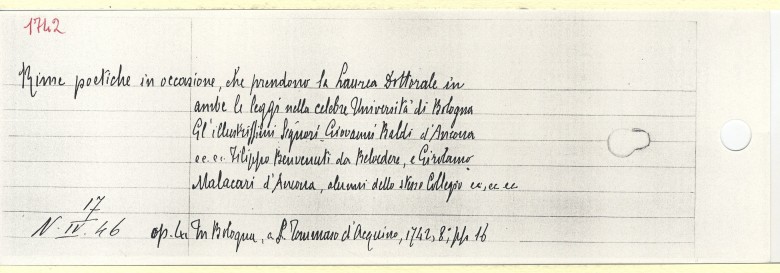 1742
Rime poetiche in occasione, che prendono la Laurea Dottorale in
ambe le leggi nella celebre Università di Bologna
Gl'illustrissimi Signori Giovanni Baldi d'Ancona
ec. ec. Filippo Benvenuti da Belvedere, e Girolamo
Malacari d'Ancona, alunni dello stesso Collegio ec, ec ec
17
N. IV. 46 op. In Bologna, a S. Tommaso d'Acquino, 1742, 8°, pp. 16